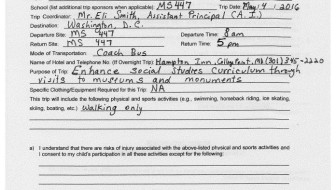 School (list additional trip sponsors when applicable) MS 447 Trip Date May 4, 2016
Trip Coordinator: Mr. Eli Smith, Assistant Principal (A.I.)
Destination: Washington D.C.
Departure Site: MS 447 Departure Time: 8am
Return Site: MS 447 Return Time: 5pm
Mode of Transportation: Coach Bus
Name of Hotel and Telephone No. (If Overnight Trip): Hampton Inn, (301) 345-2220
Purpose of Trip: Enhance Social Studies Curriculum through
visits to museums and monuments
Specific Clothing/Equipment Required for this Trip: NA
This trip will include the following physical and sports activities (e.g., swimming, horseback riding, ice skating,
skiing, boating, etc.) Walking only
a) I understand that there are risks of injury associated with the above-listed physical and sports activities and
I consent to my child's participation in all these activities except for the following: